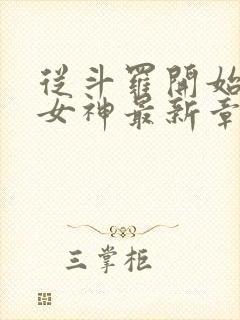 從斗羅開始
女神最新章
三掌柜